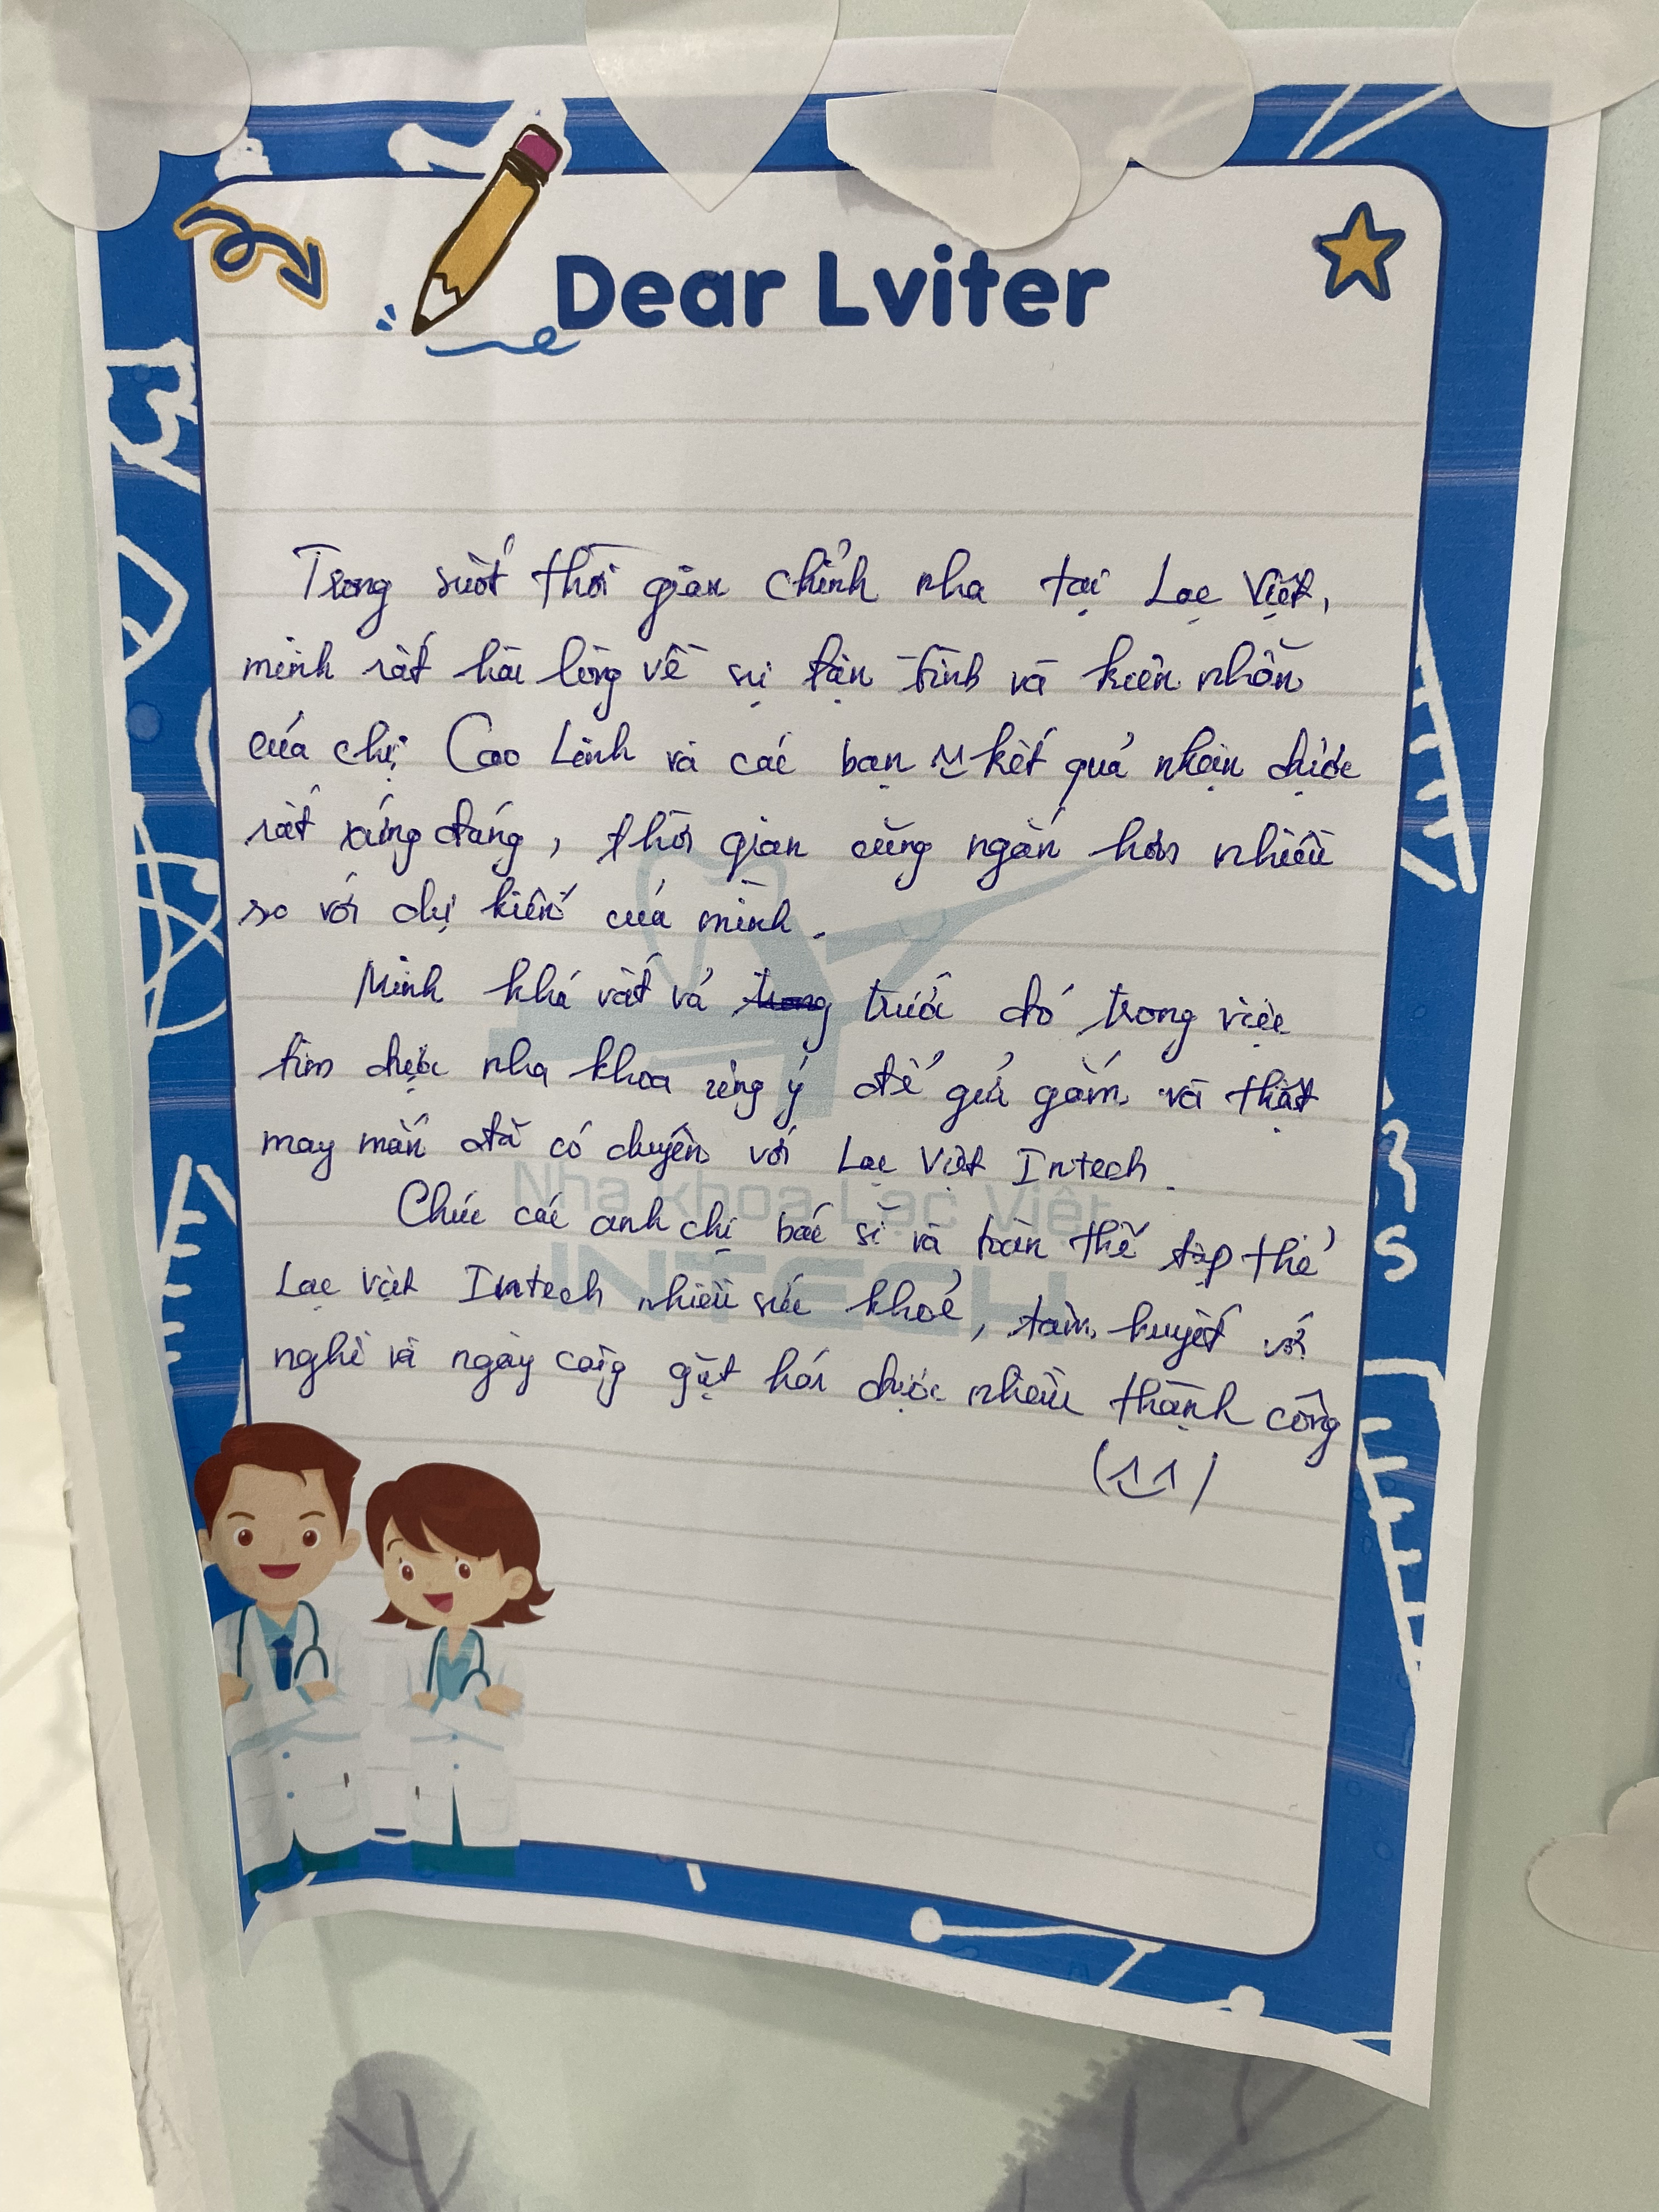 Dear Lviter
Trong suốt thời gian chỉnh nha tại Lạc Việt,
mình rất hài lòng về sự tận tình và kiên nhẫn
của chị Cao Lành và các bạn ^^ kết quả nhận được
rất xứng đáng, thời gian cũng ngắn hơn nhiều
so với dự kiến của mình.
Mình khá vất vả trước đó trong việc
tìm được nha khoa ưng ý để gửi gắm và thật
may mắn đã có duyên với Lạc Việt Intech.
Nha khoa Lạc Việt
Chúc các anh chị bác sĩ và toàn thể tập thể
INTECH
Lạc Việt Intech nhiều sức khoẻ, tâm huyết với
nghề và ngày càng gặt hái được nhiều thành công
(^_^)